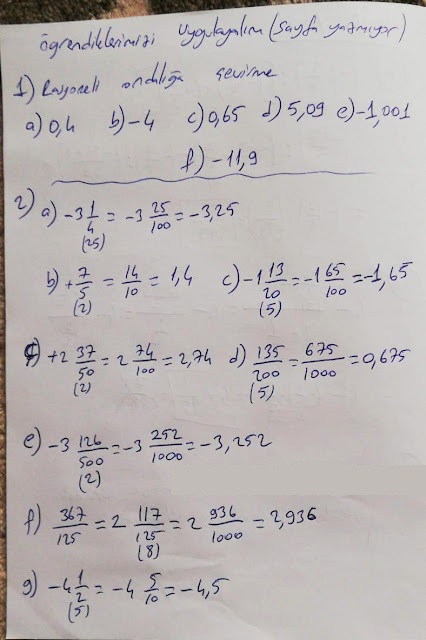 öğrendiklerimizi Uygulayalım (sayfa yazmıyor)
1) Rasyoneli ondalığa çevirme
a) 0,4 b) -4 c) 0,65 d) 5,09 e) -1,001
f) -11,9
2) a) -3 1/4 = -3 25/100 = -3,25
(25)
b) +7/5 = 14/10 = 1,4 c) -1 13/20 = -1 65/100 = -1,65
(2) (5)
+2 37/50 = 2 74/100 = 2,74 d) 135/200 = 675/1000 = 0,675
(2) (5)
e) -3 126/500 = -3 252/1000 = -3,252
(2)
f) 367/125 = 2 117/125 = 2 936/1000 = 2,936
(8)
g) -4 1/2 = -4 5/10 = -4,5
(5)